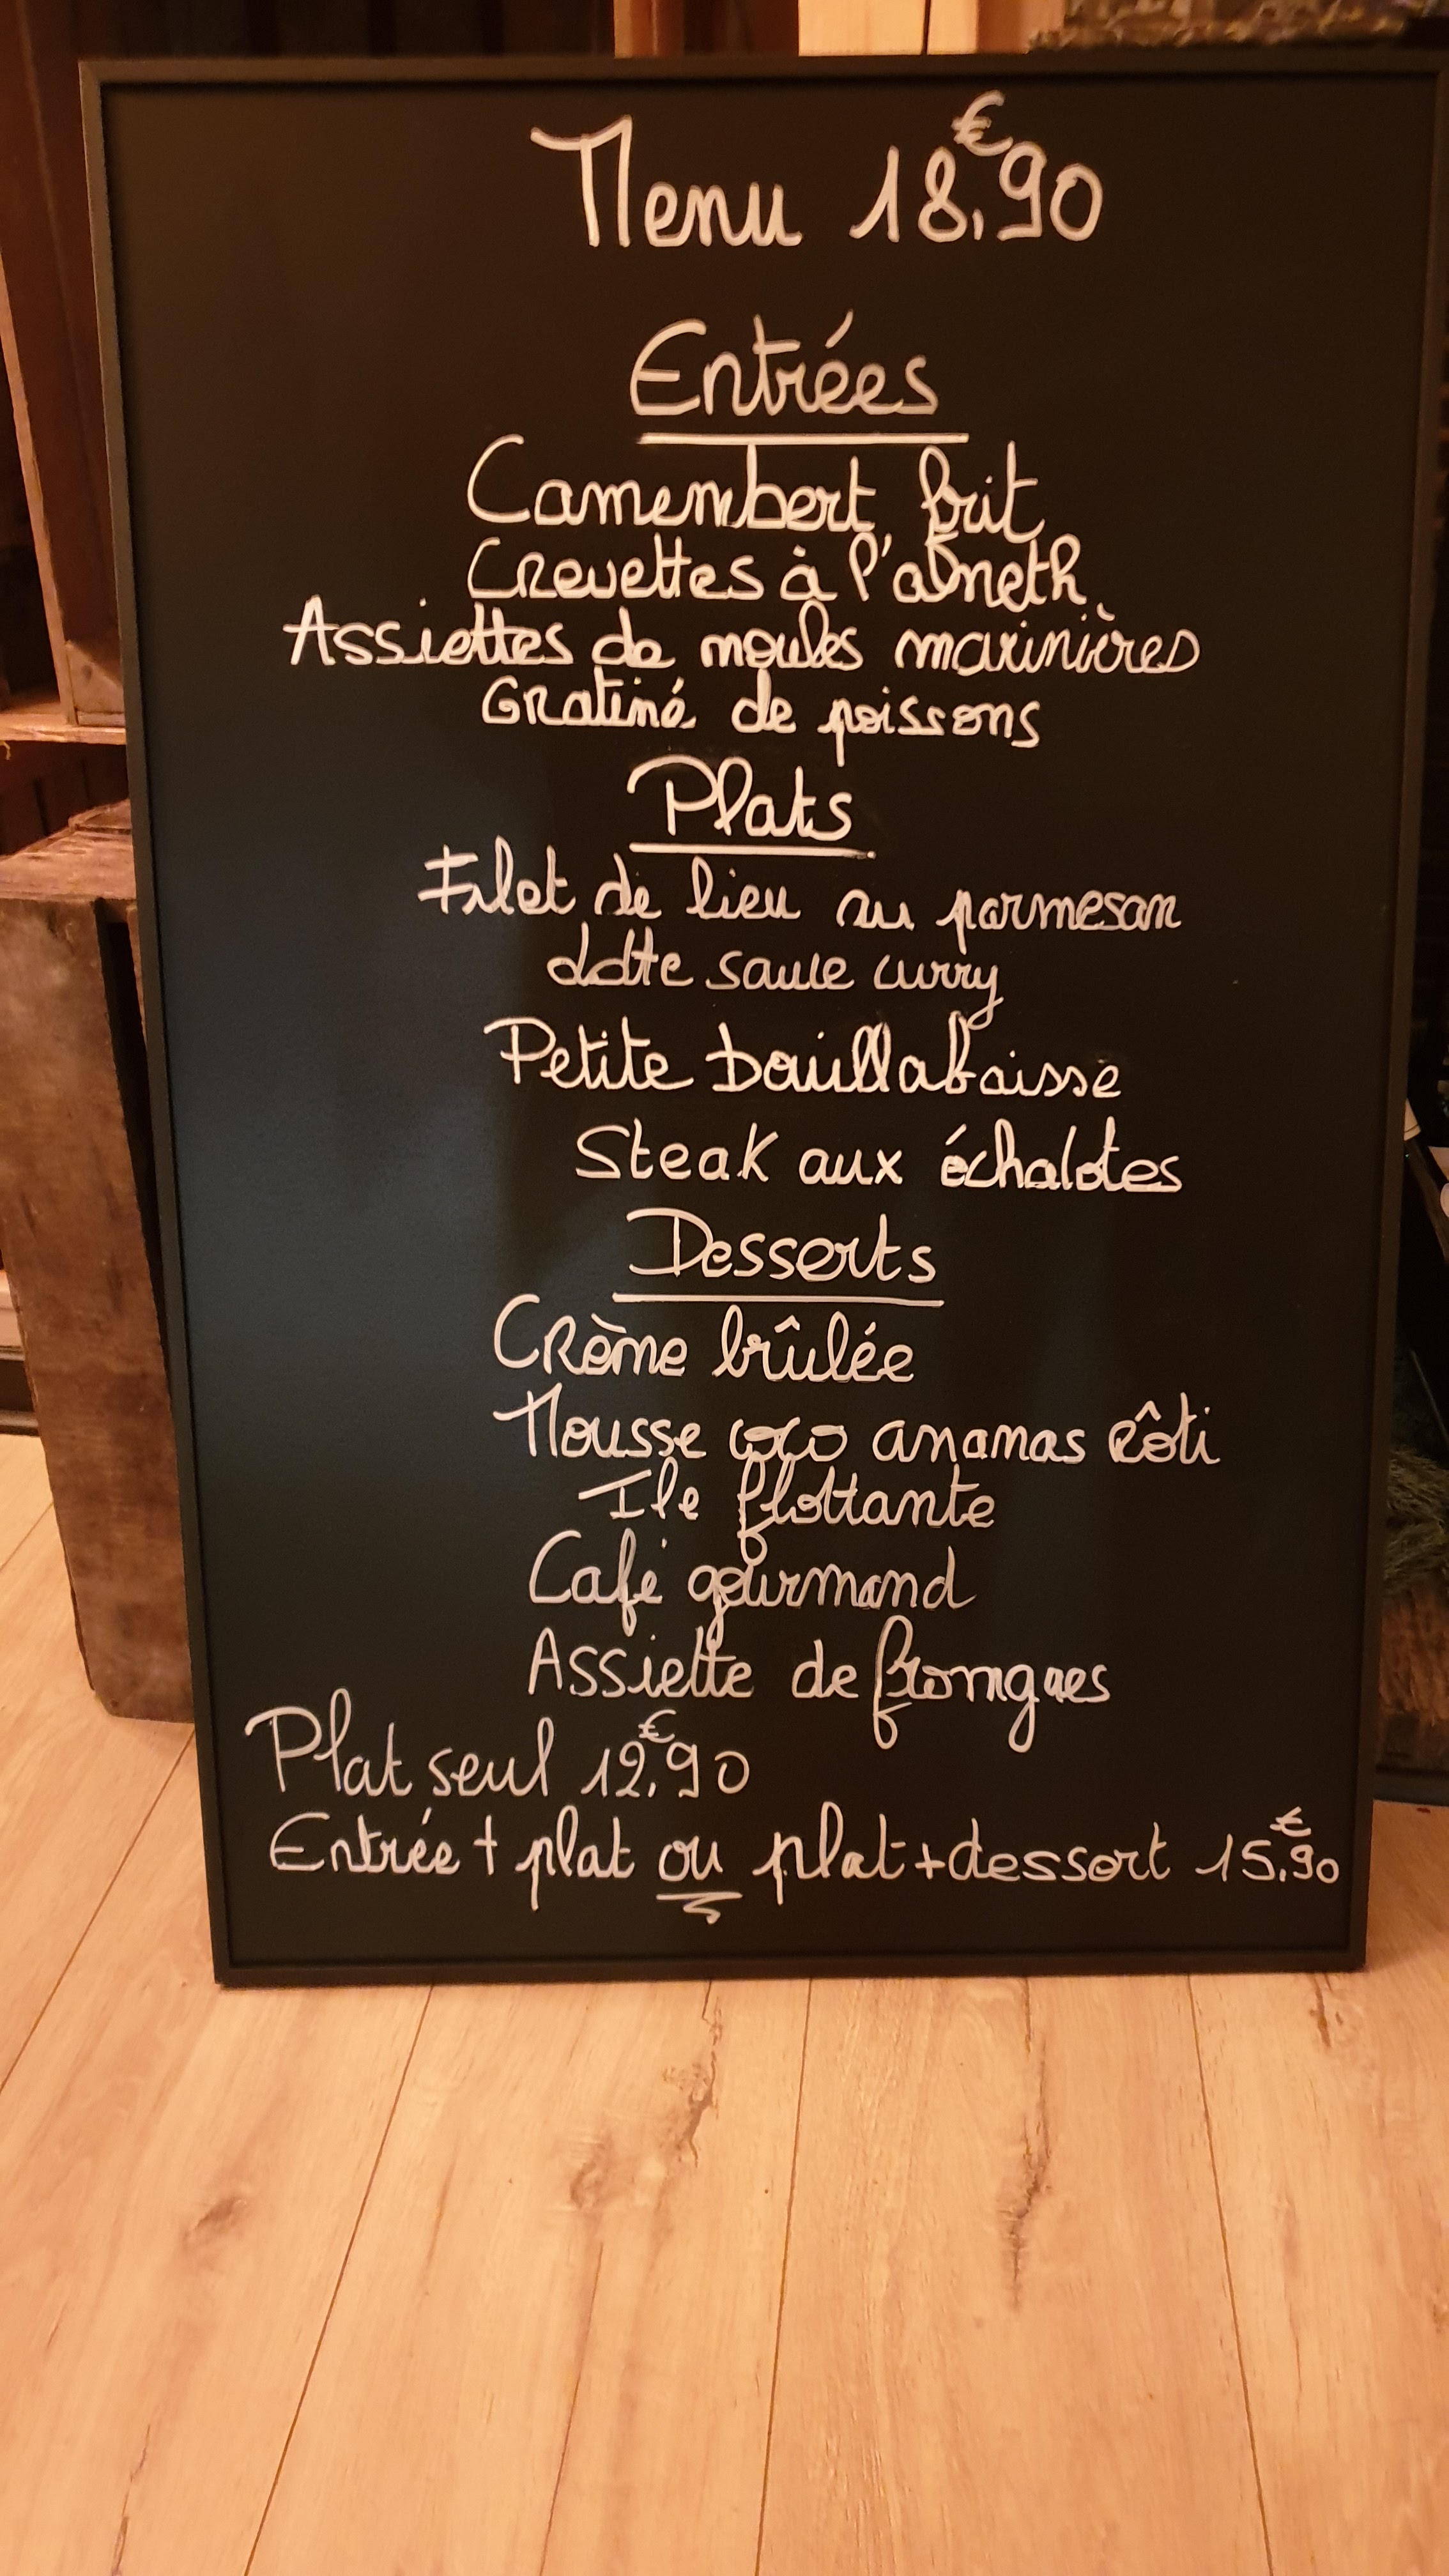 Menu 18,€90
Entrées
Camembert frit
Crevettes à l'abneth
Assiettes de moules marinières
Gratiné de poissons
Plats
Filet de lieu au parmesan
Lotte sauce curry
Petite bouillabaisse
Steak aux échalotes
Desserts
Crème brûlée
Mousse coco ananas rôti
Ile flottante
Café gourmand
Assiette de fromgaes
Plat seul 12,€90
Entrée + plat ou plat + dessert 15,€90